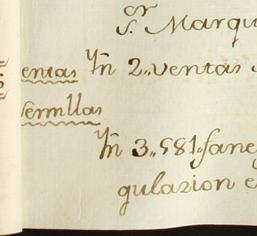 Sr. Marqu
entas Yn 2,, ventas
Semillas
Yn 3,, 581,, fane
gulazion e